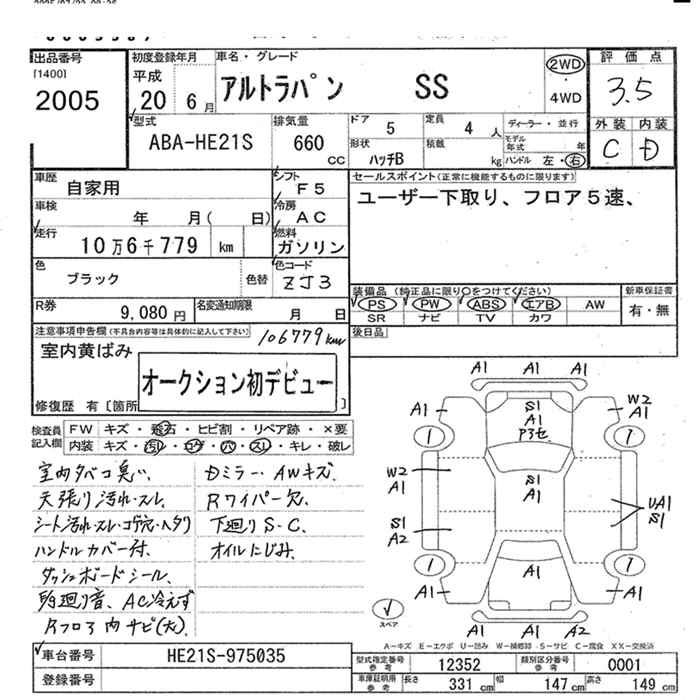 出品番号
[1400]
2005
初度登録年月
平成
20 6月
車名・グレード
アルトラパン SS
2WD
・
4WD
評価点
3.5
外装 内装
C D
型式
ABA-HE21S
排気量
660
CC
ドア 5
定員 4 人
形状 ハッチB
積載 kg
ディーラー・並行
モデル年式 年
ハンドル 左・右
車歴 自家用
シフト F5
車検 年 月( 日)
冷房 AC
走行 10万6千779 km
燃料 ガソリン
色 ブラック 色替
色コード ZJ3
R券 9,080円
名変通知期限 月 日
セールスポイント(正常に機能するものに限ります)
ユーザー下取り、フロア5速、
装備品 (純正品に限り○をつけてください)
PS PW ABS エアB AW
SR ナビ TV カワ
新車保証書
有・無
後日品
注意事項申告欄(不具合内容等は具体的に記入して下さい)
106779km
室内黄ばみ
オークション初デビュー
修復歴 有 [箇所 ]
検査員記入欄
FW キズ・飛石・ヒビ割・リペア跡・×要
内装 キズ・汚レ・コゲ・穴・スレ・キレ・破レ
室内タバコ臭い、
天張り汚れ・スレ、
シート汚れ・スレ・コゲ穴・ヘタリ
ハンドルカバー付、
ダッシュボードシール、
AC冷えず
Rフロア内サビ(大)、
Dミラー・AWキズ、
Rワイパー欠、
下廻りS・C、
オイルにじみ、
A1 A1 A1
A1 S1 A1 W2 A1
1 1
W2 A1
S1 A1
UA1 S1
S1 A2
1 1
A1 A1 A1
A1 A1 A2
スペア
A-キズ E-エクボ U-凹み W-補修跡 S-サビ C-腐食 XX-交換済
車台番号 HE21S-975035
登録番号
型式指定番号 参考 12352
類別区分番号 参考 0001
車庫証明用 参考
長さ 331 cm 幅 147 cm 高さ 149 cm